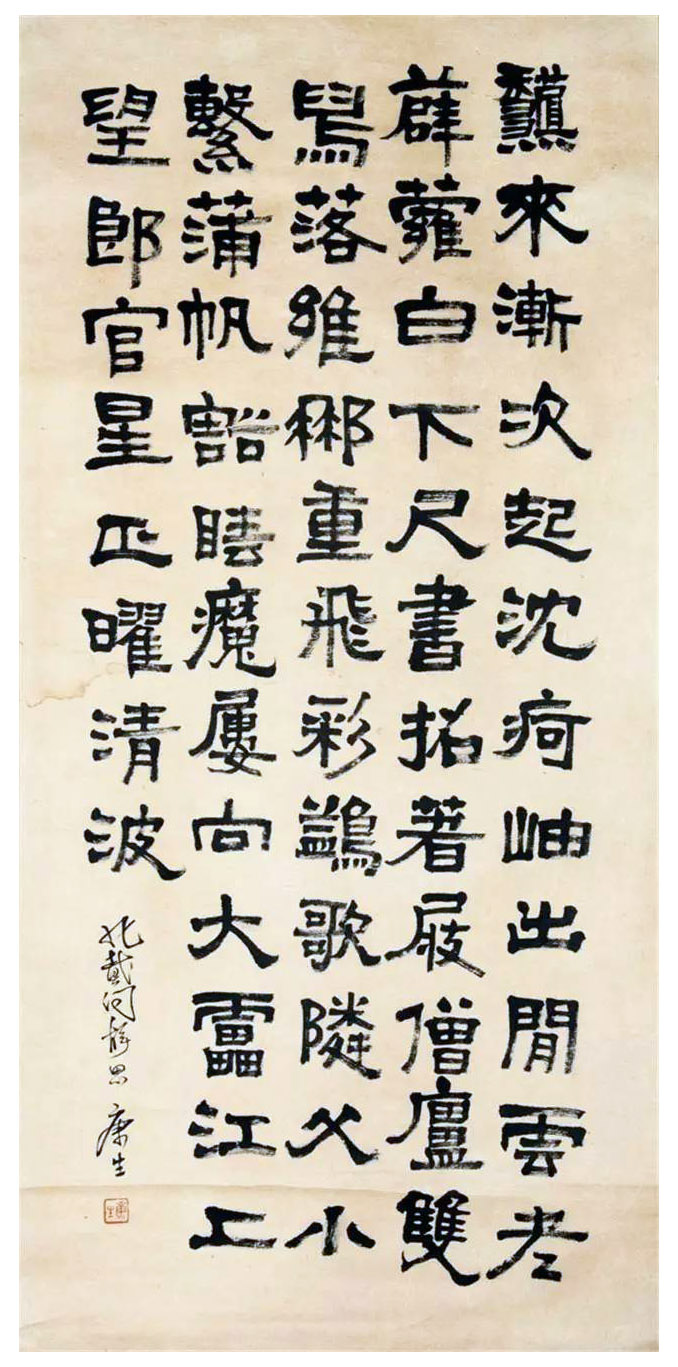 龝來漸次起沈痾岫出閒雲老
薜蘿白下尺書招著屐僧廬雙
舄落維那重飛彩鷁歌隣父小
繫蒲帆豁睡魔屢向大靁江上
望郎官星正曜清波
北戴河靜思 康生
康生